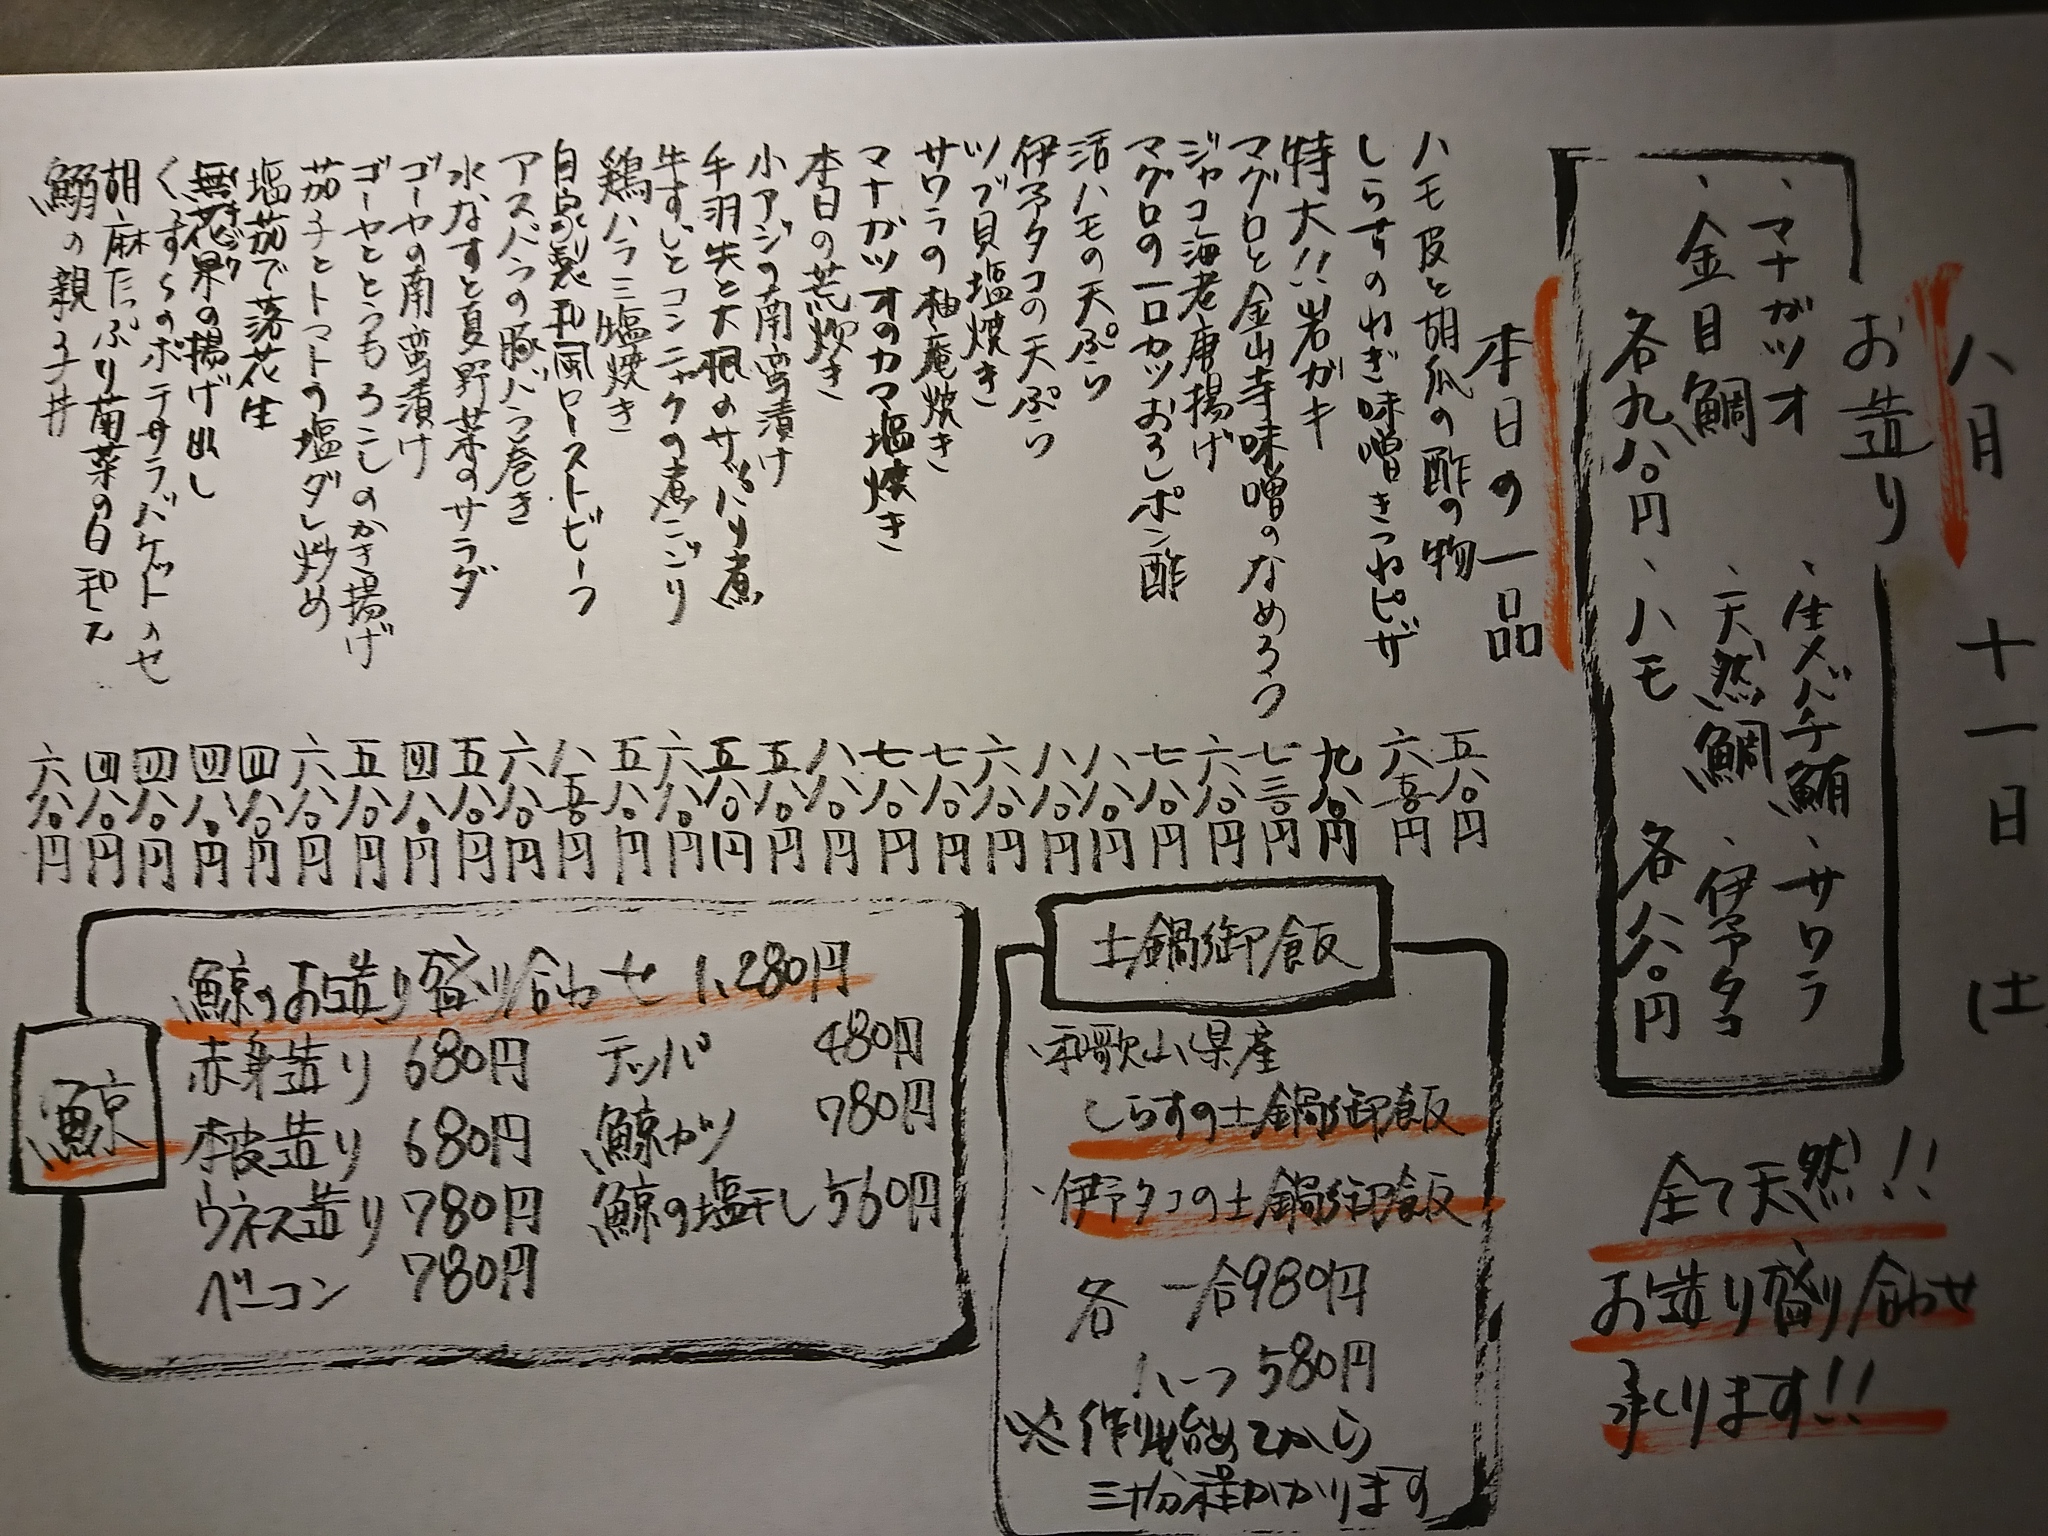 八月 十一日 (土)
お造り
、マナガツオ 、生メバチ鮪 、サワラ
、金目鯛 、天然鯛 、伊予タコ
各九八〇円 、ハモ 各八八〇円
全て天然!!
お造り盛り合わせ
承ります!!
本日の一品
ハモ皮と胡瓜の酢の物 五八〇円
しらすのねぎ味噌きつねピザ 六五〇円
特大!!岩ガキ 九八〇円
マグロと金山寺味噌のなめろう 七三〇円
ジャコ海老唐揚げ 六八〇円
マグロの一口カツおろしポン酢 七八〇円
活ハモの天ぷら 八八〇円
伊予タコの天ぷら 八八〇円
ツブ貝塩焼き 六八〇円
サワラの柚庵焼き 七八〇円
マナガツオのカマ塩焼き 七八〇円
本日の荒炊き 八八〇円
小アジの南蛮漬け 五八〇円
手羽先と大根のサッパリ煮 五八〇円
牛すじとコンニャクの煮こごり 六八〇円
鶏ハラミ塩焼き 五八〇円
自家製和風ローストビーフ 八五〇円
アスパラの豚バラ巻き 六八〇円
水なすと夏野菜のサラダ 五八〇円
ゴーヤの南蛮漬け 四八〇円
ゴーヤととうもろこしのかき揚げ 五八〇円
茄子とトマトの塩ダレ炒め 六八〇円
塩茹で落花生 四八〇円
無花果の揚げ出し 四八〇円
くずくのポテサラバケットのせ 四八〇円
胡麻たっぷり菊菜の白和え 四八〇円
鰯の親子丼 六八〇円
土鍋御飯
、和歌山県産
しらすの土鍋御飯
、伊予タコの土鍋御飯
各 一合980円
ハーフ580円
※作り始めてから
三十分程かかります
鯨
鯨のお造り盛り合わせ 1,280円
赤身造り 680円 テッパ 480円
本皮造り 680円 鯨カツ 780円
ウネス造り 780円 鯨の塩干し 560円
ベーコン 780円